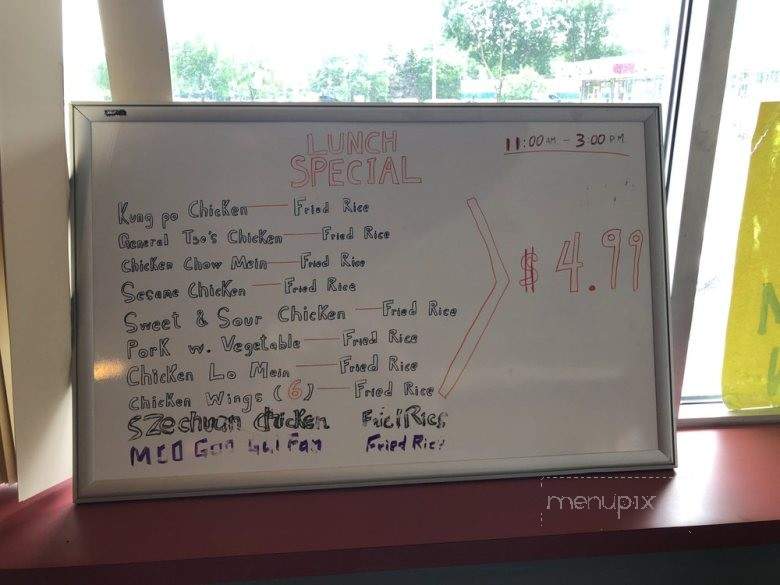 LUNCH
SPECIAL
11:00 AM - 3:00 P.M.
Kung po Chicken — Fried Rice
General Tso's Chicken — Fried Rice
Chicken Chow Mein — Fried Rice
Sesame Chicken — Fried Rice
Sweet & Sour Chicken — Fried Rice
Pork w. Vegetable — Fried Rice
Chicken Lo Mein — Fried Rice
Chicken Wings (6) — Fried Rice
$ 4.99
Szechuan chicken Fried Rice
Moo Goo Gai Pan Fried Rice
menupix